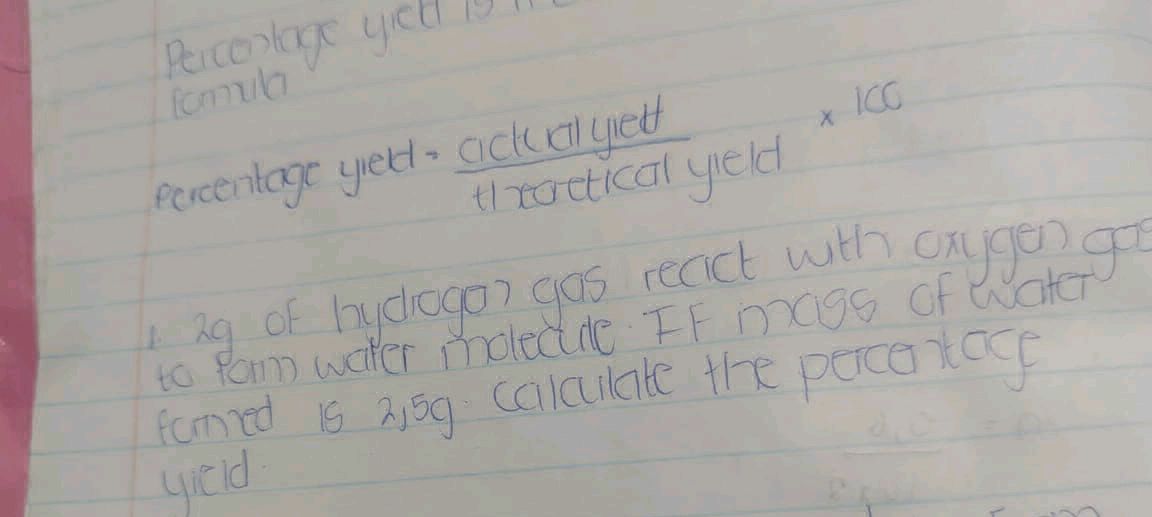 Percentage yield is
formula
Percentage yield = actual yield / theoretical yield × 100
1. 2g of hydrogen gas react with oxygen gas
to form water molecule. If mass of water
formed is 2,5g. calculate the percentage
yield.